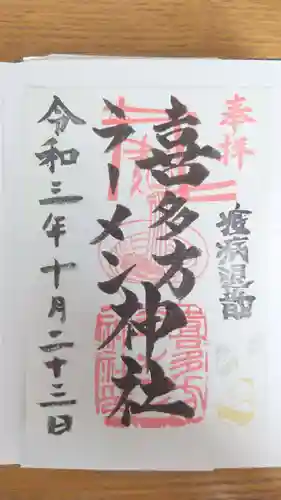 奉拝
疫病退散
喜多方神社
ラーメン
令和三年十月二十三日